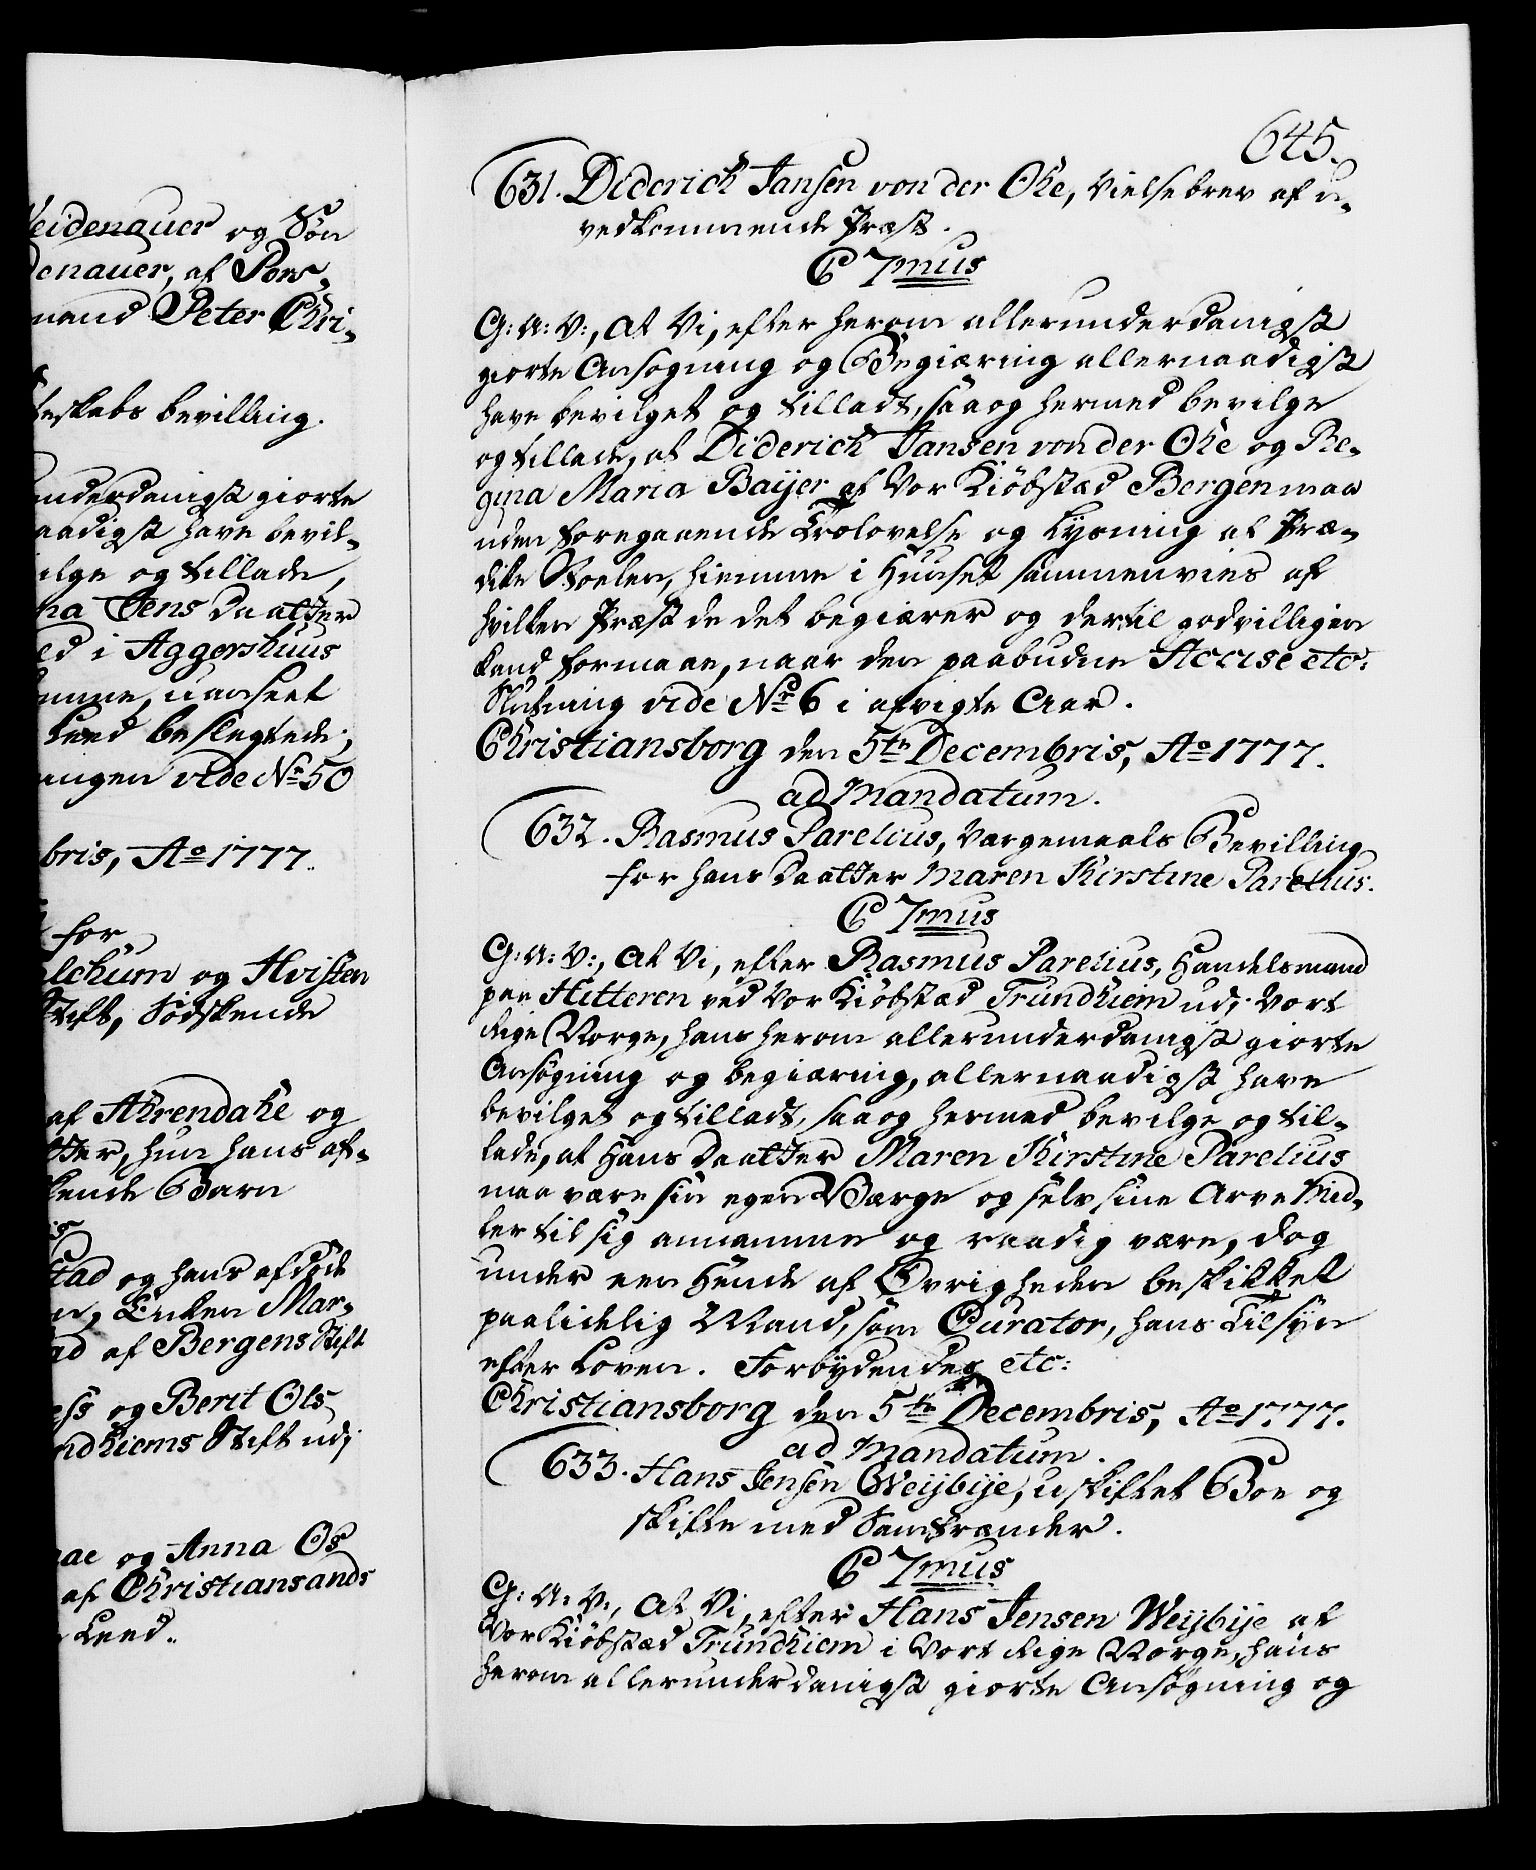 eidenauer og Søn
denauer, af Pors-
mand Peter Chri-
teskabs bevilling.
underdanigst giorte
aadigst have bevil-
ilge og tillade,
na Jens Daatter
ed i Aggershuus
omme, uanseet
Leed beslegtede,
ningen vide No 50
bris, Ao 1777.
for
lchum og Hvisten
Stift, Sødskende
af Ahrendahl og
tter, hun hans af-
kende Barn
stad og hans afdøde
n, Enken Mar-
ad af Bergens Stift
ess og Berit Ols
ndhiems Stift udj
aae og Anna Os
af Christiansands
Leed.
645.
631. Diderich Jansen von der Ohe, Vielsebrev af u-
vedkommende Præst.
C 7mus
G: A: V:, At Vi, efter herom allerunderdanigst
giorte Ansøgning og Begiæring allernaadigst
have bevilget og tilladt, saa og hermed bevilge
og tillade, at Diderich Jansen von der Ohe og Re-
gina Maria Baijer af Vor Kiøbstæd Bergen maa
uden foregaaende Trolovelse og Lysning af Præ-
dike Stoelen, hiemme i Huuset sammenvies af
hvilken Præst de det begiærer og dertil godvilligen
kand formaae, naar den paabudne Accise etc:
Slutning vide No 6 i afvigte Aar.
Christiansborg den 5te Decembris, Ao 1777.
ad Mandatum.
632. Rasmus Parelius, Værgemaals Bevilling
for hans Daatter Maren Kirstine Parelius.
C 7mus
G: A: V:, At Vi, efter Rasmus Parelius, Handelsmand
paa Hitteren ved Vor Kiøbstæd Trundhiem udj Vort
Rige Norge, hans herom allerunderdanigst giorte
Ansøgning og begiæring, allernaadigst have
bevilget og tilladt, saa og hermed bevilge og til-
lade, at Hans Daatter Maren Kirstine Parelius
maa være sin egen Værge og selv sine Arve Mid-
ler til sig annamme og raadig være, dog
under een Hende af Øvrigheden beskikket
paalidelig Mand, som Curator, hans Tilsyn
efter Loven. Forbydendes etc:
Christiansborg den 5te Decembris, Ao 1777.
ad Mandatum.
633. Hans Jensen Weijbije, uskiftet Boe og
skifte med Samfrænder.
C 7mus
G: A: V:, At Vi, efter Hans Jensen Weijbije af
Vor Kiøbstæd Trundhiem i Vort Rige Norge, hans
herom allerunderdanigst giorte Ansøgning og